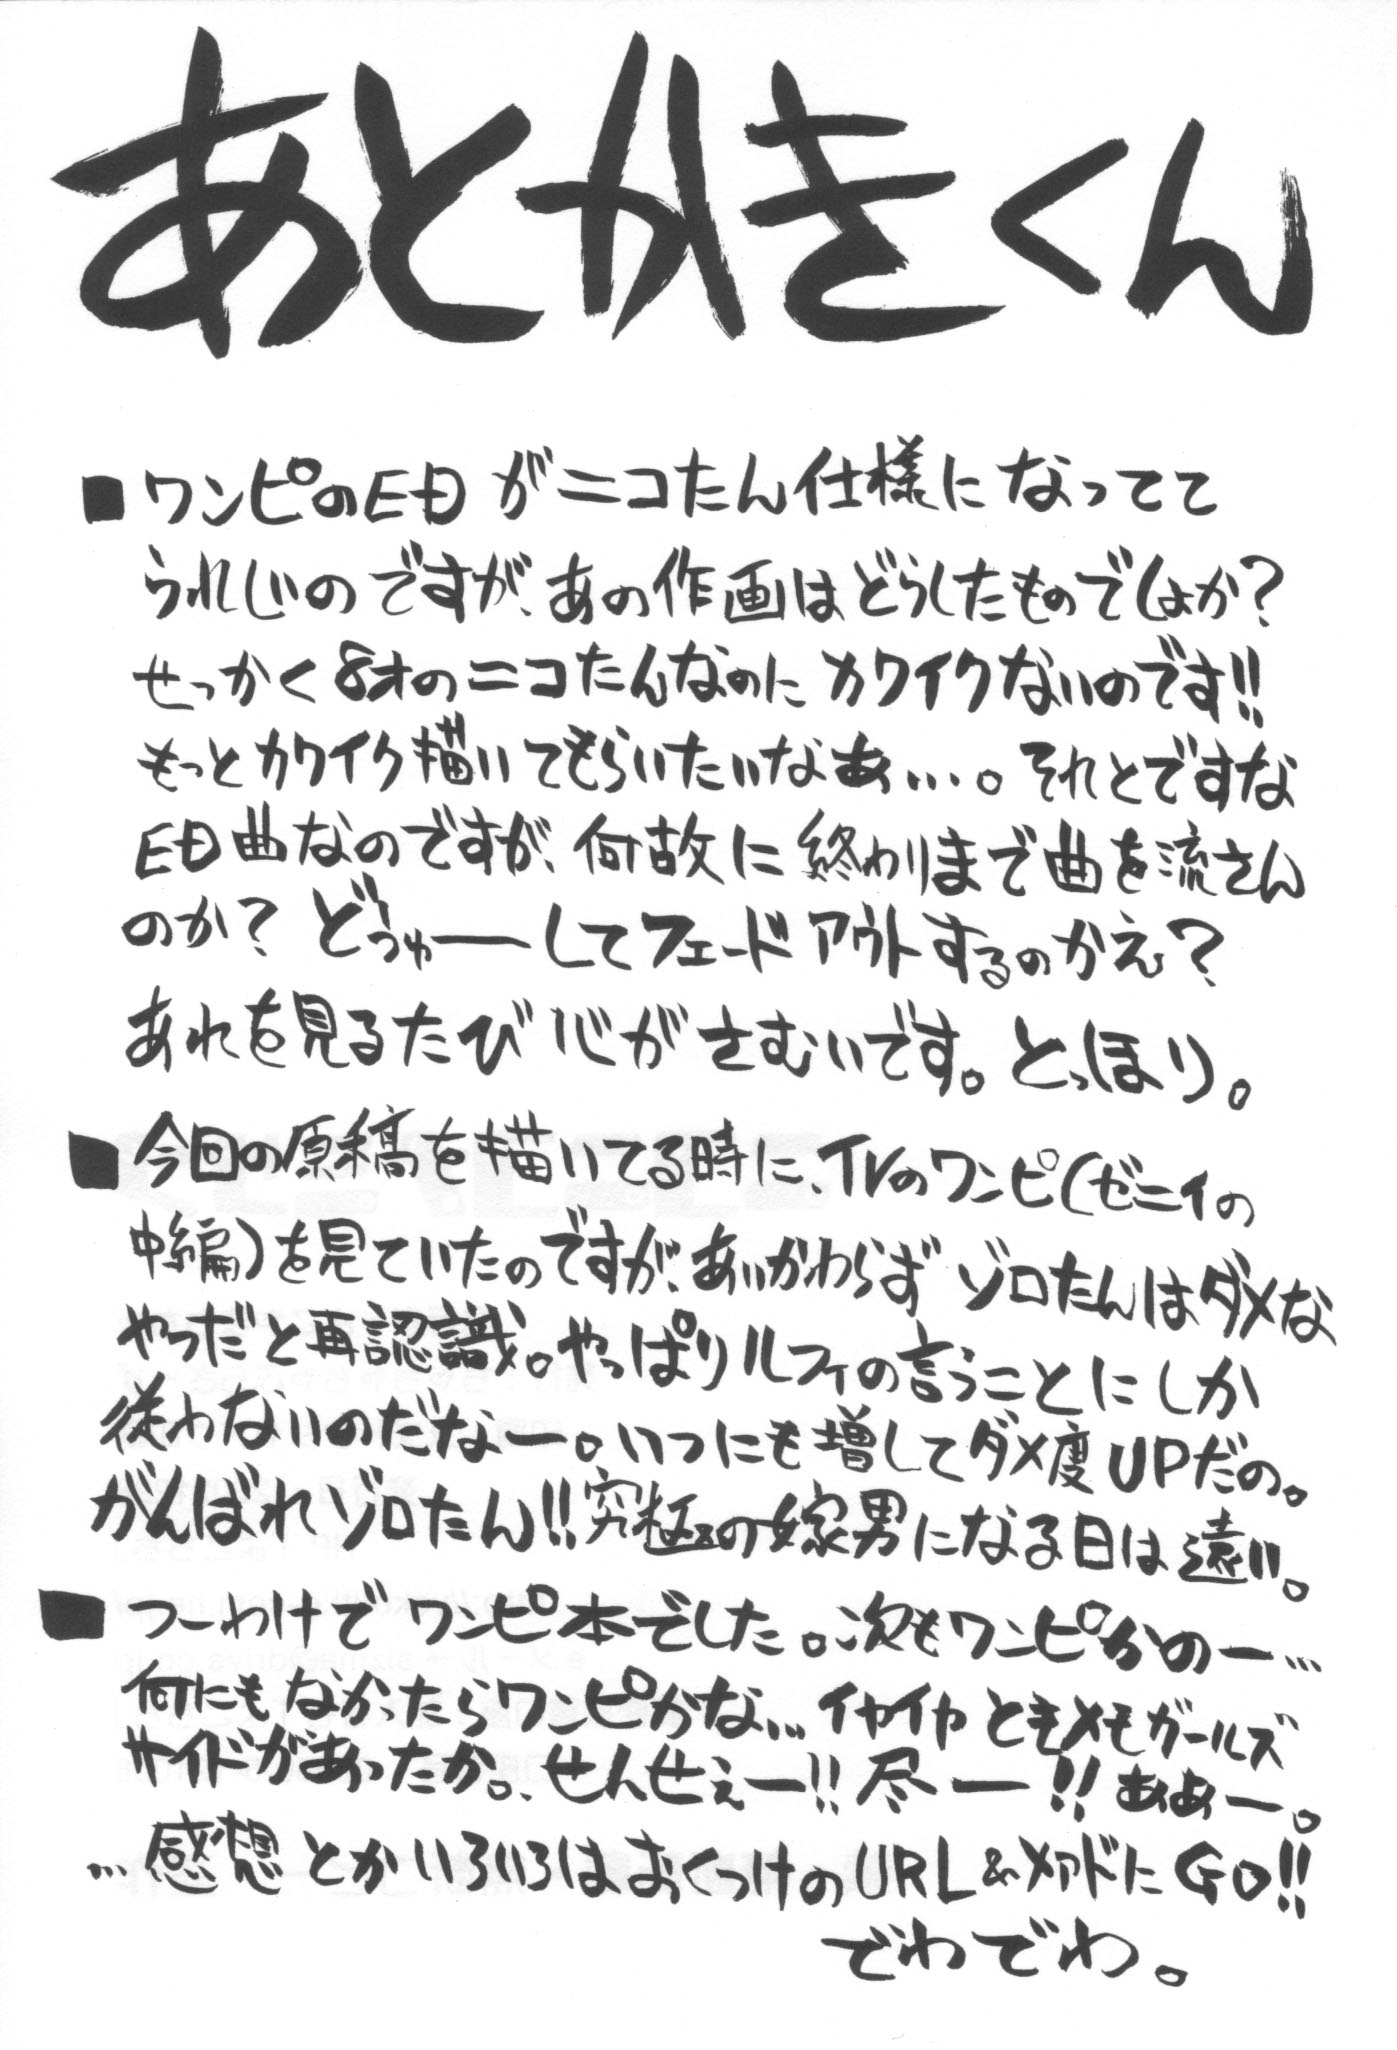 あとかきくん
■ワンピのEDがニコたん仕様になってて
うれしいのですが、あの作画はどうしたものでしょか？
せっかく8才のニコたんなのにカワイクないのです!!
もっとカワイク描いてもらいたいなあ…。それとですな
ED曲なのですが、何故に終わりまで曲を流さん
のか？どぅゅーしてフェードアウトするのかえ？
あれを見るたび心がさむいです。とっほり。
■今回の原稿を描いてる時に、TVのワンピ(ゼニィの
中編)を見ていたのですが、あいかわらずゾロたんはダメな
やつだと再認識。やっぱりルフィの言うことにしか
従わないのだなー。いつにも増してダメ度UPだの。
がんばれゾロたん!!究極の嫁男になる日は遠い。
■つーわけでワンピ本でした。次もワンピかのー…
何にもなかったらワンピかな…イヤイヤときメモガールズ
サイドがあったか。せんせぇー!!尽ー!!ああー。
…感想とかいろいろはおくつけのURL&メアドにGO!!
でわでわ。